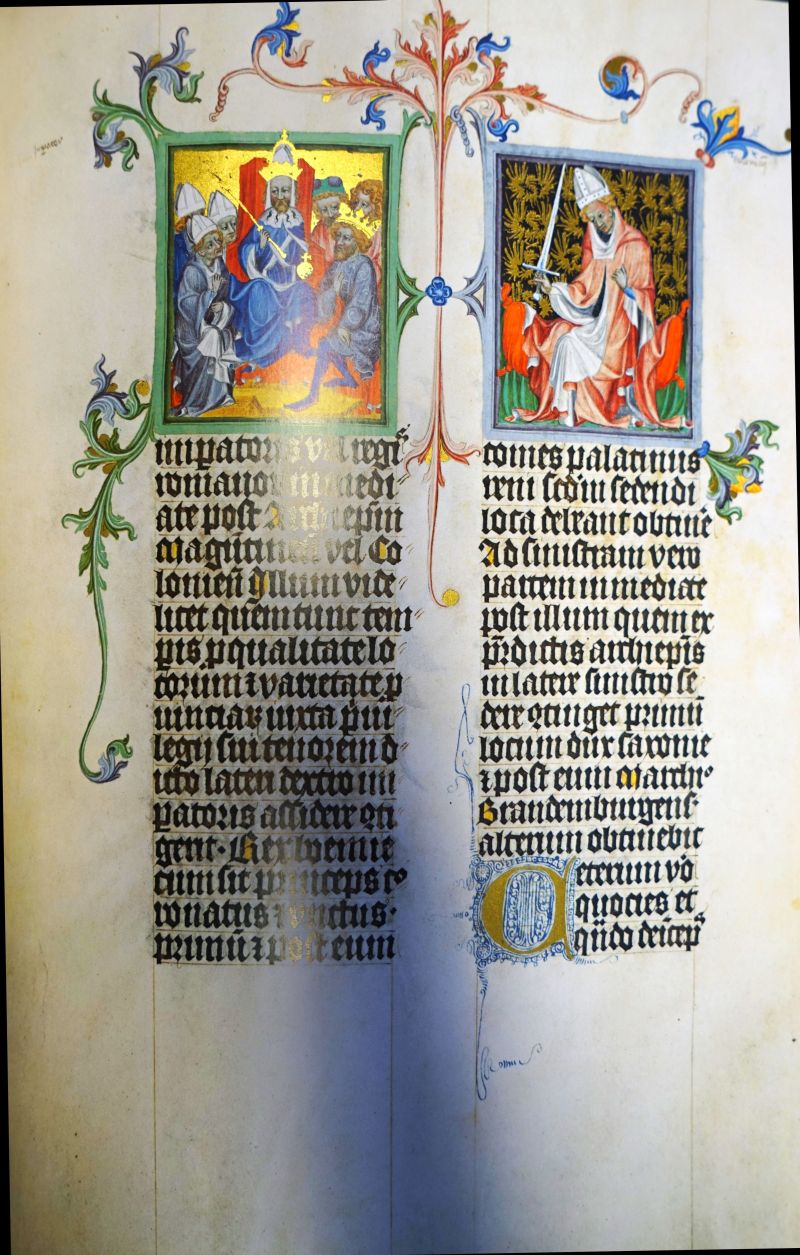 imꝑatoris vel regis
romanoꝝ inmedi
ate post Archiep̄m
Magūtineñ vel Co
lonieñ Illum vide
licet quem tunc tem
ꝑis ꝓ qualitate lo
corum ⁊ varietate ꝓ
uinciaꝝ iuxta p̄ui
legij sui tenorem d
icto lateri dextro im
ꝑatoris assidere ꝯti
gerit · Rex boemie
cum sit princeps co
ronatus ⁊ vnctus ·
primū ⁊ post eum
comes palatinus
reni scd̄m sedendi
loca debeant obtin̄e
Ad sinistram vero
partem inmediate
post illum quem ex
p̄dictis archiep̄is
in latere sinistro se
dere ꝯtinget primū
locum dux saxonie
⁊ post eum Marchi
Brandemburgens
alterum obtinebit
Ceterum vō
quocies et
qn̄do deicep̄